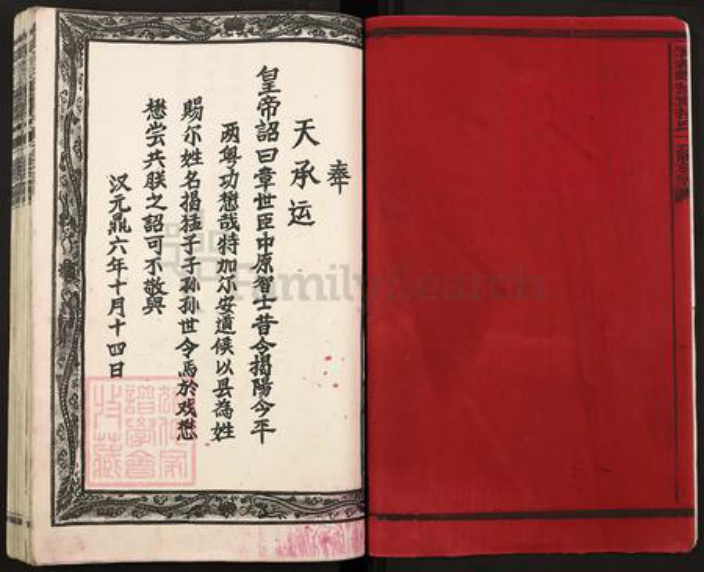 奉
天承运
皇帝詔曰章世臣中原智士昔令揭陽今平
两粤功懋哉特加尔安道侯以县為姓
赐尔姓名揭猛子子孙孙世令焉於戏懋
懋尝共朕之詔可不敬與
汉元鼎六年十月十四日
FamilySearch